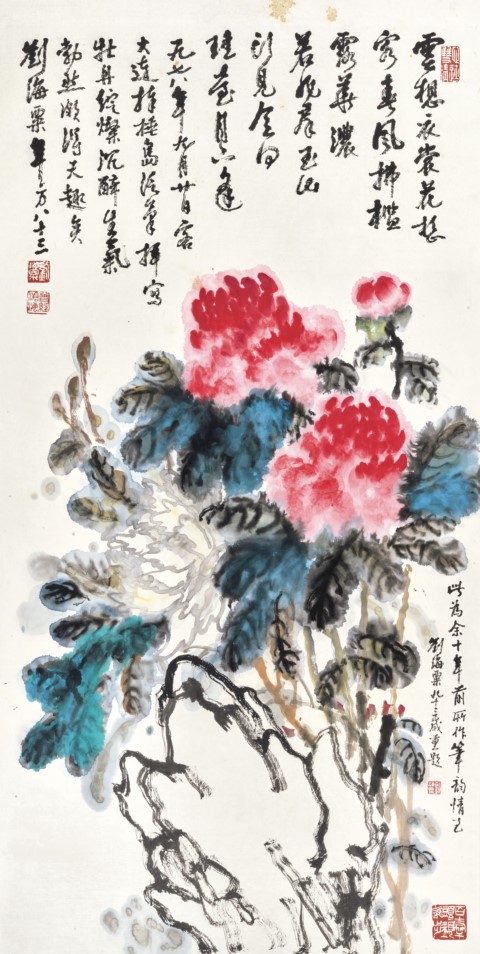 雲想衣裳花想
容春風拂檻
露華濃
若非群玉山
頭見會向
瑤臺月下逢
一九七八年九月廿日客
大連棒棰島筆揮寫
牡丹綻燦沉醉生氣
勃然頗得天趣矣
劉海粟年方八十三
此為余十年前所作筆韻情
劉海粟九十三歲重題